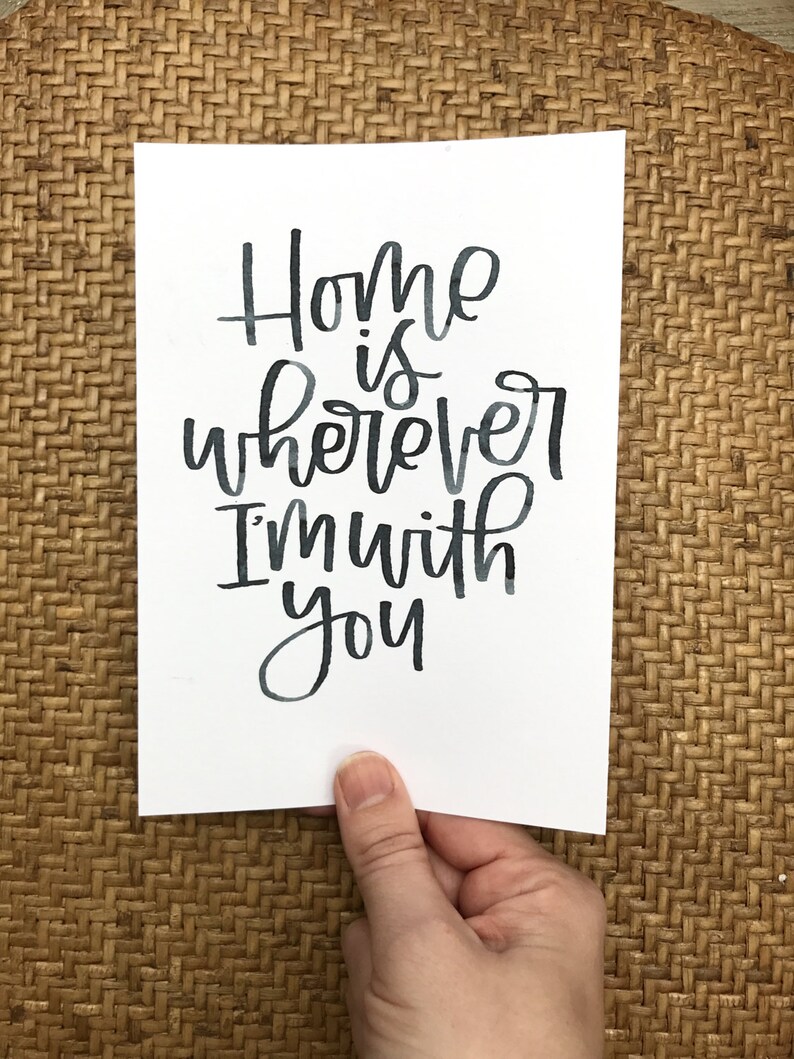 Home
is
wherever
I'm with
you